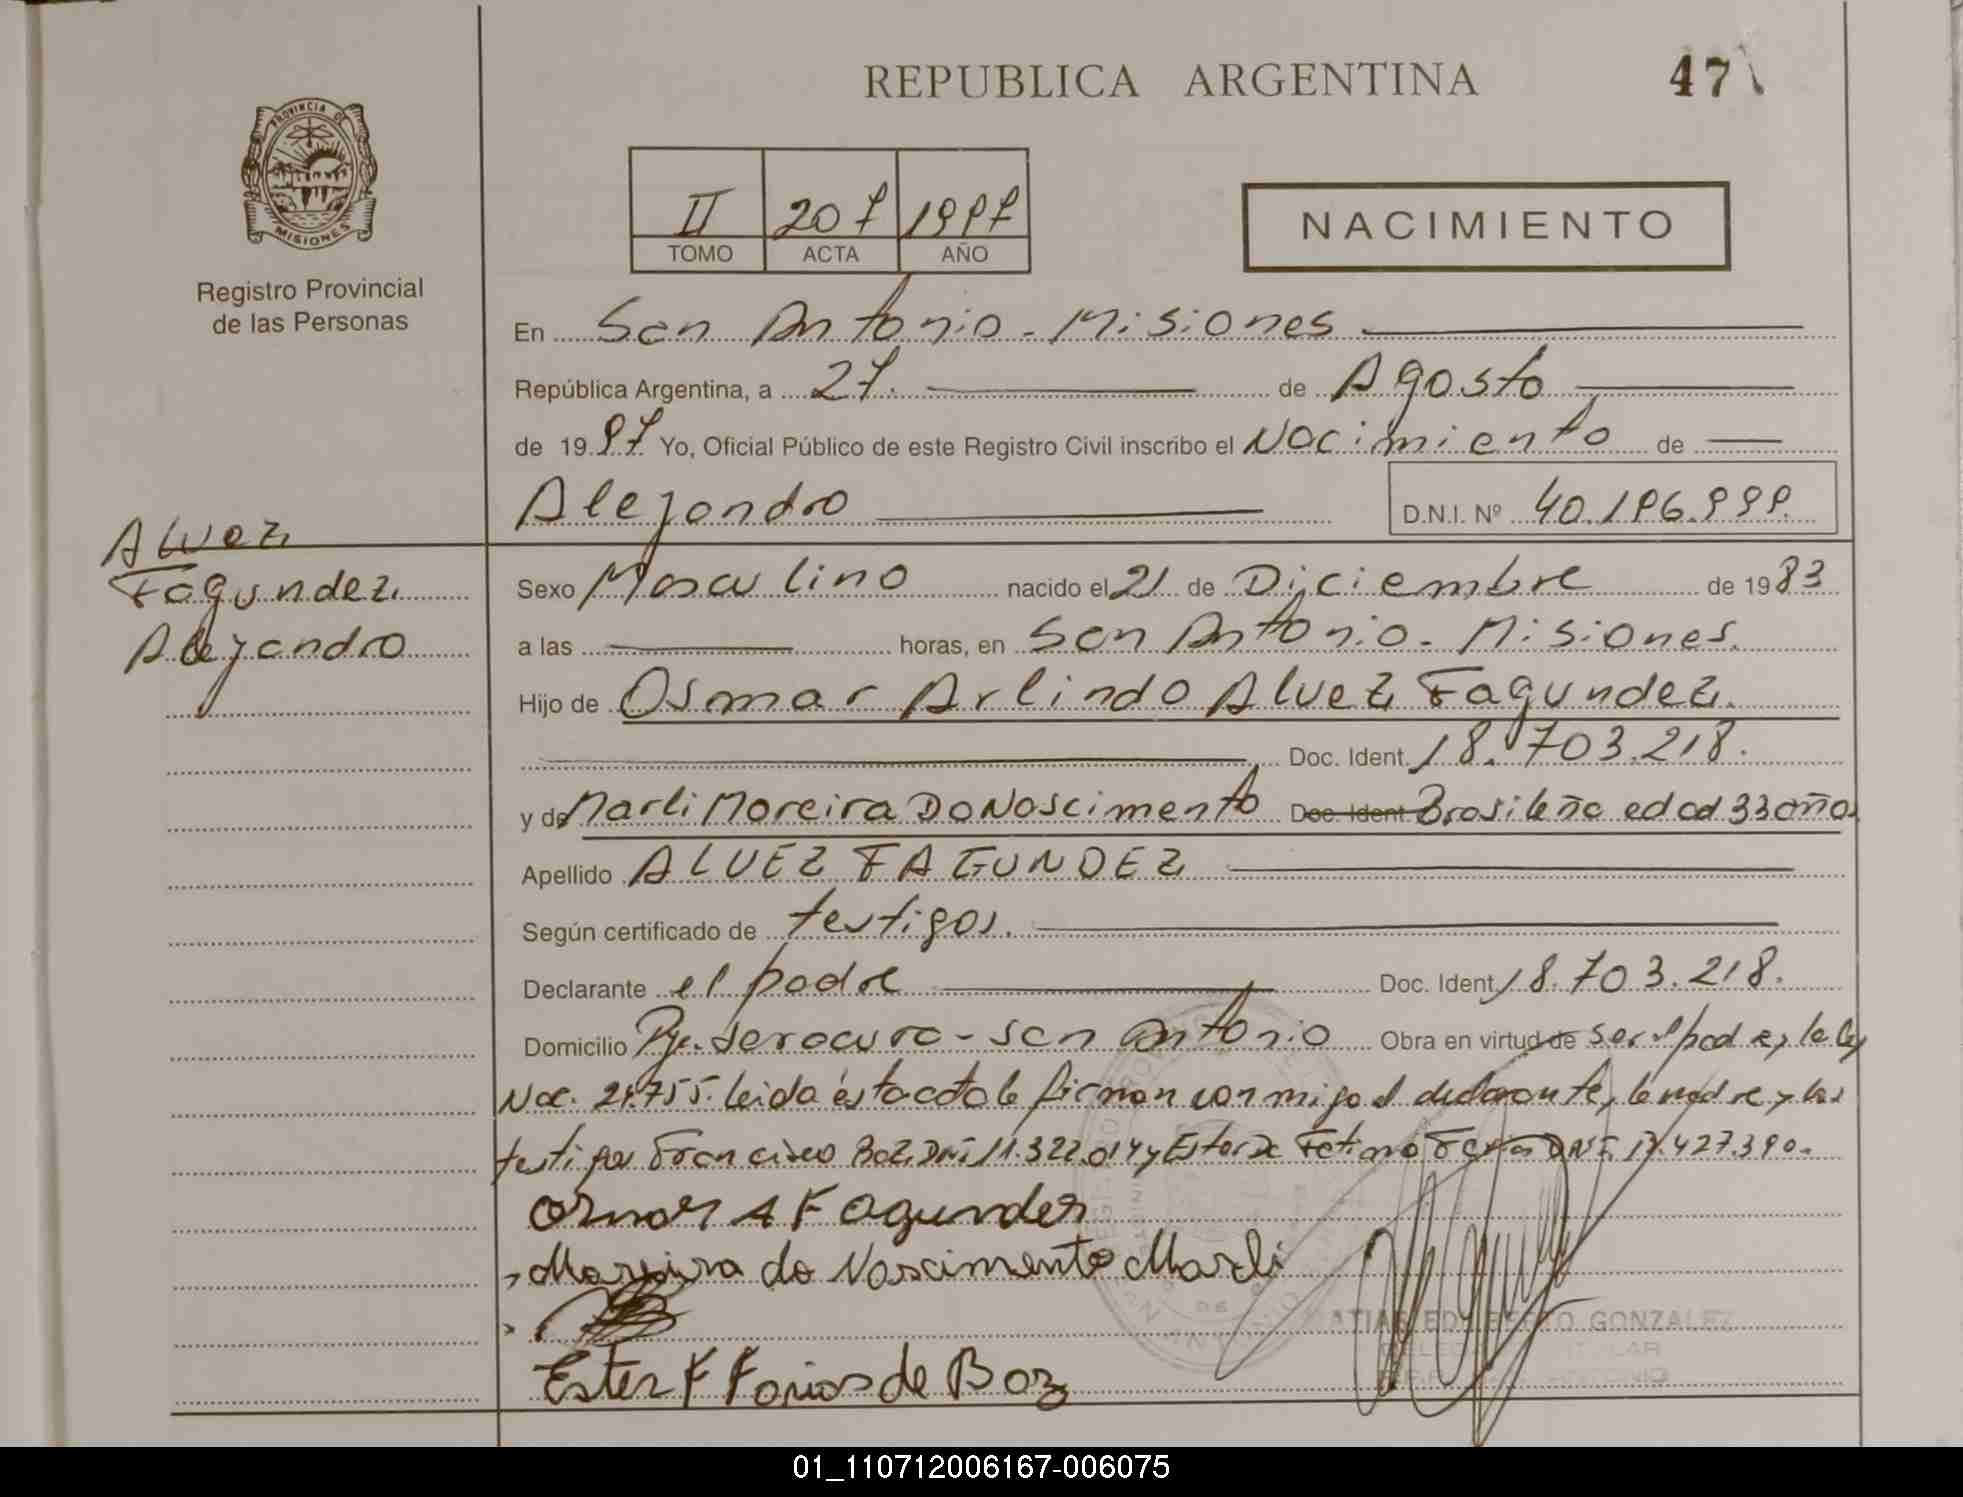 REPUBLICA ARGENTINA
47
PROVINCIA DE
MISIONES
Registro Provincial
de las Personas
II 207 1997
TOMO ACTA AÑO
NACIMIENTO
En San Antonio - Misiones
República Argentina, a 27. de Agosto
de 1997 Yo, Oficial Público de este Registro Civil inscribo el Nacimiento de
Alejandro D.N.I. Nº 40.196.999.
Alvez
Fagundez
Alejandro
Sexo Masculino nacido el 21 de Diciembre de 1983
a las horas, en San Antonio - Misiones.
Hijo de Osmar Arlindo Alvez Fagundez.
Doc. Ident. 18.703.218.
y de Marli Moreira Do Nascimento Doc. Ident Brasileña edad 33 años
Apellido ALVEZ FAGUNDEZ
Según certificado de testigos.
Declarante el padre Doc. Ident 18.703.218.
Domicilio Pje. - San Antonio Obra en virtud de ser el padre, la ley
Nac. 24.755. leida ésta acta la firman conmigo el declarante, la madre y los
testigos Francisco Boz DNI 11.322.014 y Ester De Fatima DNI 17.427.390.
Osmar A Fagundez
Moreira do Nascimento Marli
Ester F Farias de Boz
GONZALEZ
01_110712006167-006075